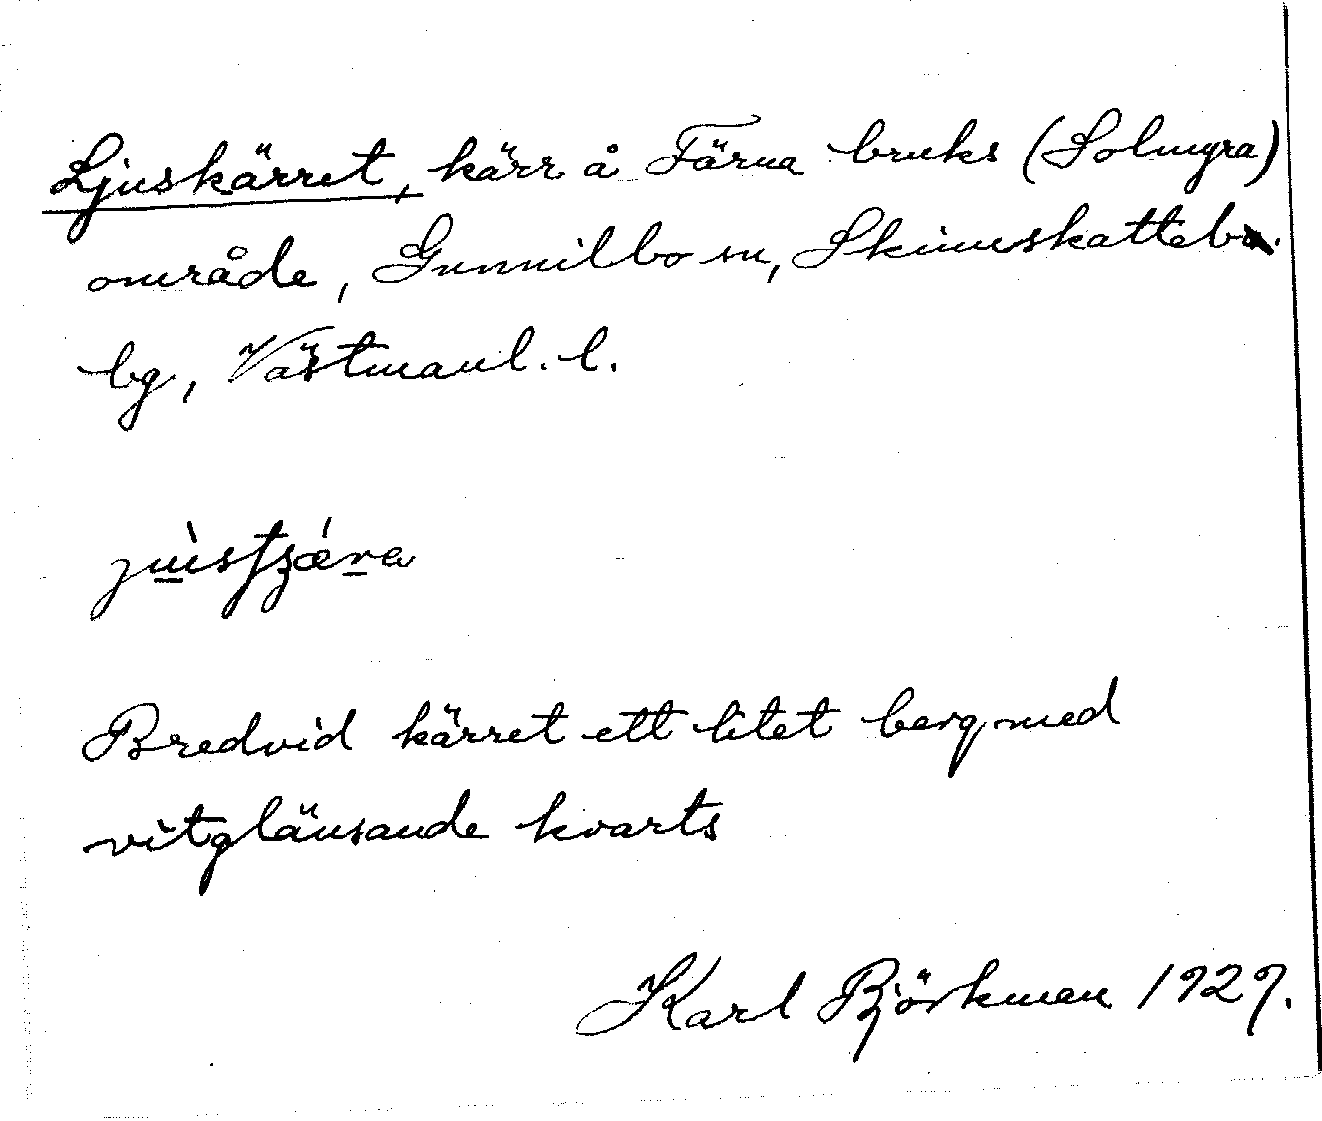 Ljuskärret, kärr å Färna bruks (Solmyra)
område, Gunnilbo sn, Skinnskattebg.
bg, Västmanl. l.
Bredvid kärret ett litet berg med
vitglänsande kvarts
Karl Björkman 1929.